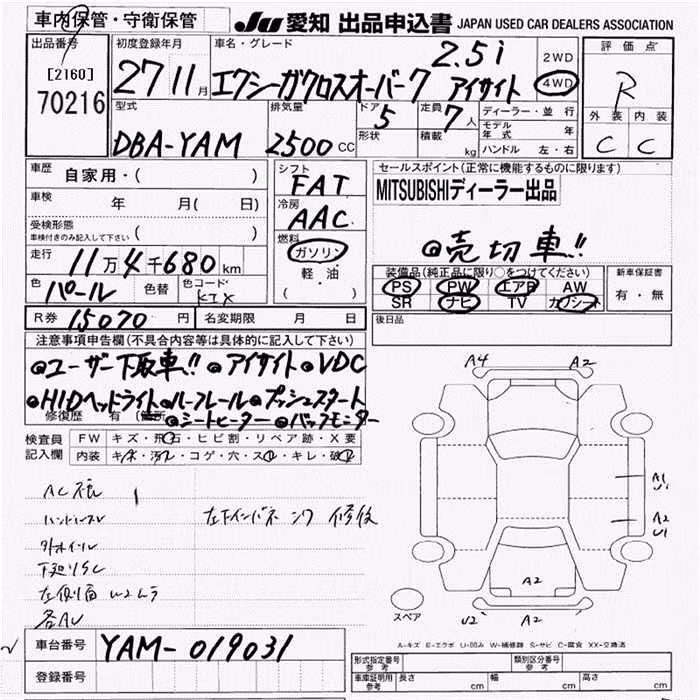 車内保管・守衛保管
JU 愛知 出品申込書 JAPAN USED CAR DEALERS ASSOCIATION
出品番号
[2160]
70216
初度登録年月
27 11 月
車名・グレード
2.5i
エクシーガクロスオーバー7 アイサイト
2WD
4WD
評価点
R
外装 内装
C C
型式
DBA-YAM
排気量
2500 CC
ドア 5
形状
定員 7 人
積載 kg
ディーラー・並行
モデル年式 年
ハンドル 左・右
車歴 自家用・( )
車検 年 月( 日)
受検形態
車検付きのみ記入して下さい ( )
走行 11万4千680km
色 パール 色替 色コード K1X
シフト
FAT
冷房
AAC
燃料
ガソリン
軽・油
( )
セールスポイント(正常に機能するものに限ります)
MITSUBISHIディーラー出品
◎売切車!!
装備品(純正品に限り○をつけてください)
PS PW エアB AW
SR ナビ TV カワシート
新車保証書
有・無
後日品
R券 15070 円 名変期限 月 日
注意事項申告欄(不具合内容等は具体的に記入して下さい)
◎ユーザー下取車!! ◎アイサイト ◎VDC
◎HIDヘッドライト ◎ルーフレール ◎プッシュスタート
修復歴 有 ◎シートヒーター ◎バックモニター
検査員記入欄
FW キズ・飛石・ヒビ割・リペア跡・X要
内装 キズ・汚レ・コゲ・穴・スレ・キレ・破レ
左側面 W2ムラ
A4 A2
A1
U1
A2
U1
A2
U2 A2
スペア
A-キズ E-エクボ U-凹み W-補修跡 S-サビ C-腐食 XX-交換済
車台番号 YAM-019031
登録番号
形式指定番号 参考
類別区分番号 参考
車庫証明用 参考 長さ cm 幅 cm 高さ cm